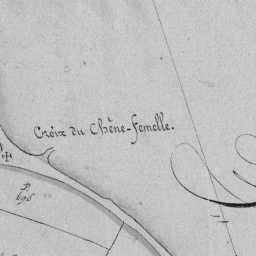 Croix du Chêne-femelle.